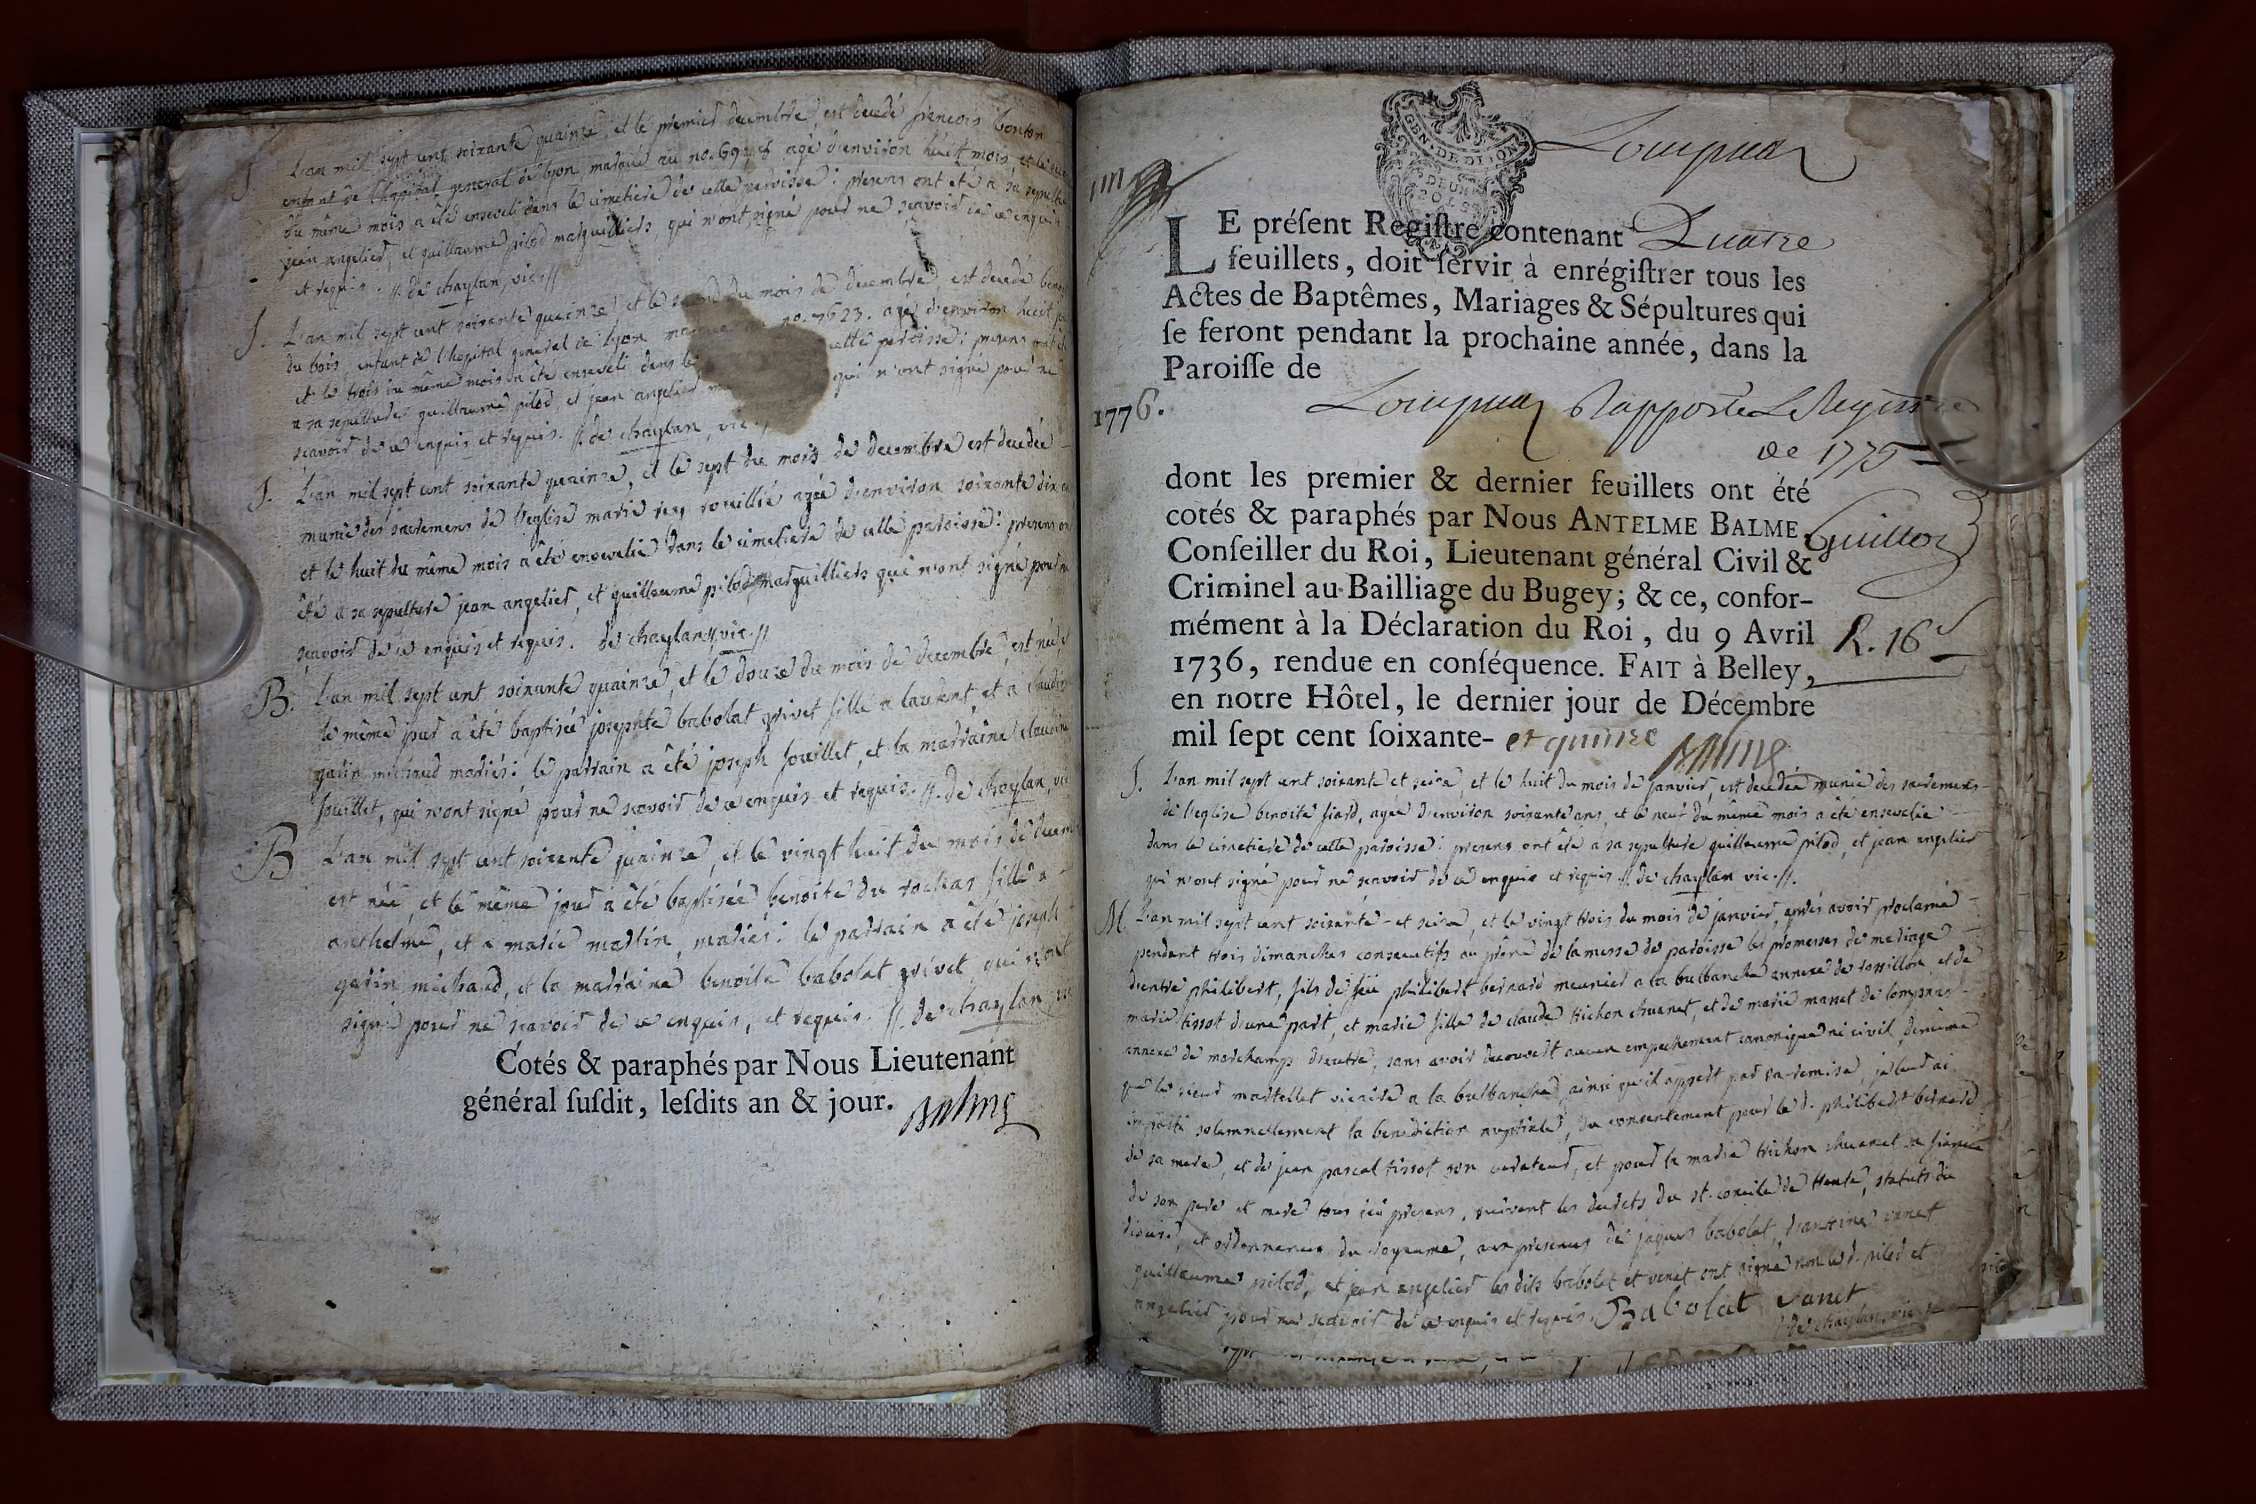 S. L'an mil sept cent soixante quainze, et le premier decembre, est decedé francois bonton
enfant de l'hopital general de lyon marqué au no. agé d'environ huit mois et le
du même mois a été enseveli dans le cimetiere de cette paroisse: presens ont été a sa sepulture
jean angelier, et guillaume pilod marguilliers qui n'ont signé pour ne scavoir de ce enquis
et requis. //. de chaylan, vic //
S. L'an mil sept cent soixante quainze, et le second du mois de decembre, est decedé
du bois enfant de l'hopital general de lyon no. 7623. agé d'environ huit
et le trois du même mois a été enseveli dans le cette paroisse: presens ont été
a sa sepulture guillaume pilod, et jean angelier qui n'ont signé pour ne
scavoir de ce enquis et requis. //. de chaylan, vic.
S. L'an mil sept cent soixante quainze, et le sept du mois de decembre est decedée
munie des sacremens de l'eglise marie rey rouillié agée d'environ soixante dix
et le huit du même mois a été ensevelie dans le cimetiere de cette paroisse: presens ont
été a sa sepulture jean angelier, et guillaume pilod marguilliers qui n'ont signé pour ne
scavoir de ce enquis et requis. de chaylan, vic. //
B. L'an mil sept cent soixante quainze, et le douze du mois de decembre, est née, et
le même jour a été baptisée josephte babolat grivet fille a laurent, et a claudine
garin michaud mariés: le parrain a été joseph fouillet, et la marraine claudine
fouillet, qui n'ont signé pour ne scavoir de ce enquis et requis. //. de chaylan, vic
B L'an mil sept cent soixante quainze, et le vingt huit du mois de decembre
est née, et le même jour a été baptisée benoite du rochas fille a
anthelme, et a marie martin, mariés: le parrain a été joseph
garin michaud, et la marraine benoite babolat grivet, qui n'ont
signé pour ne scavoir de ce enquis, et requis. //. de chaylan, vic
Cotés & paraphés par Nous Lieutenant
général susdit, lesdits an & jour. Balme
GEN. DE DIJON
DEUX
SOLS
Lompnaz
LE présent Registre contenant Quatre
feuillets, doit servir à enrégistrer tous les
Actes de Baptêmes, Mariages & Sépultures qui
se feront pendant la prochaine année, dans la
Paroisse de
1776. Lompnaz Rapporté Le Registre
de 1775
dont les premier & dernier feuillets ont été
cotés & paraphés par Nous ANTELME BALME,
Conseiller du Roi, Lieutenant général Civil &
Criminel au Bailliage du Bugey; & ce, confor-
mément à la Déclaration du Roi, du 9 Avril
1736, rendue en conséquence. FAIT à Belley,
en notre Hôtel, le dernier jour de Décembre
mil sept cent soixante- et quinze Balme
Guillon
R. 16 s
S. L'an mil sept cent soixante et seize, et le huit du mois de janvier, est decedée munie des sacremens
de l'eglise benoite siard, agée d'environ soixante ans, et le neuf du même mois a été ensevelie
dans le cimetiere de cette paroisse: presens ont été a sa sepulture guillaume pilod, et jean angelier
qui n'ont signé pour ne scavoir de ce enquis et requis. //. de chaylan vic. //.
M. L'an mil sept cent soixante - et seize, et le vingt trois du mois de janvier, aprés avoir proclamé
pendant trois dimanches consecutifs au prône de la messe de paroisse les promesses de mariage
d'entre philibert, fils de feu philibert bernard meunier a la bulbanche annexe de rossillon, et de
marie tissot d'une part, et marie fille de claude trichon chuanet, et de marie masset de lompnas
annexe de marchamp d'autre, sans avoir decouvert aucun empechement canonique ni civil, de même
que le sieur martellet vicaire a la bulbanche, ainsi qu'il appert par sa remise, je leur ai
imparti solemnellement la benediction nuptiale, du consentement pour le d. philibert bernard
de sa mere, et de jean pascal tissot son curateur, et pour la marie trichon chuanet sa fiancée
de son pere et mere tous ici presens, suivant les decrets du st. concile de trente, statuts du
diocese, et ordonnances du royaume, aux presences de jaques babolat, d'antoine vanet
guillaume pilod, et jean angelier les dits babolat et vanet ont signé non les d. pilod et
angelier pour ne scavoir de ce enquis et requis. Babolat vanet
de chaylan, vic